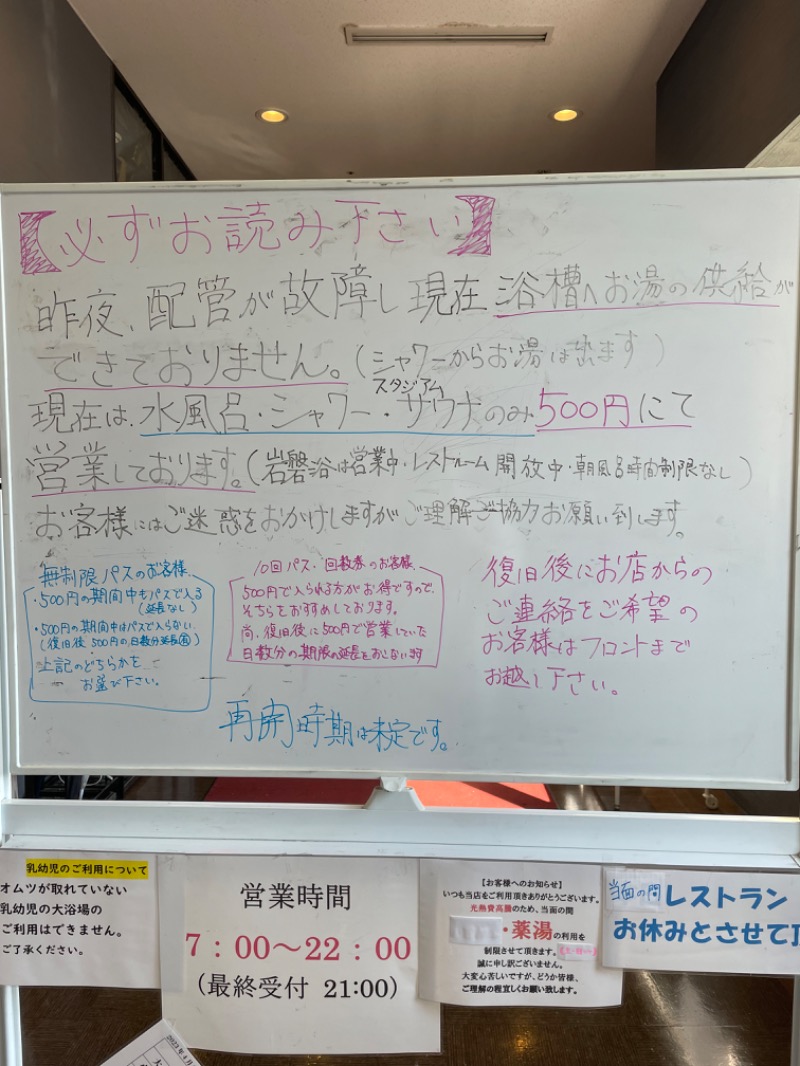 【必ずお読み下さい】
昨夜、配管が故障し現在浴槽へお湯の供給が
できておりません。(シャワーからお湯は出ます)
現在は、水風呂・シャワー・スタジアムサウナのみ500円にて
営業しております。(岩盤浴は営業中・レストルーム開放中・朝風呂時間制限なし)
お客様にはご迷惑をおかけしますがご理解ご協力お願い致します。
無制限パスのお客様
・500円の期間中もパスで入る
(延長なし)
・500円の期間中はパスで入らない
(復旧後500円の日数分延長有)
上記のどちらかを
お選び下さい。
10回パス・回数券のお客様
500円で入られる方がお得ですので、
そちらをおすすめしております。
尚、復旧後に500円で営業していた
日数分の期限の延長をおこないます
復旧後にお店からの
ご連絡をご希望の
お客様はフロントまで
お越し下さい。
再開時期は未定です。
乳幼児のご利用について
オムツが取れていない
乳幼児の大浴場の
ご利用はできません。
ご了承ください。
営業時間
7:00~22:00
(最終受付 21:00)
【お客様へのお知らせ】
いつも当店をご利用頂きありがとうございます。
光熱費高騰のため、当面の間
・薬湯の利用を
制限させて頂きます。
誠に申し訳ございません。
大変心苦しいですが、どうか皆様、
ご理解の程宜しくお願い致します。
当面の間レストラン
お休みとさせて
2023年4月